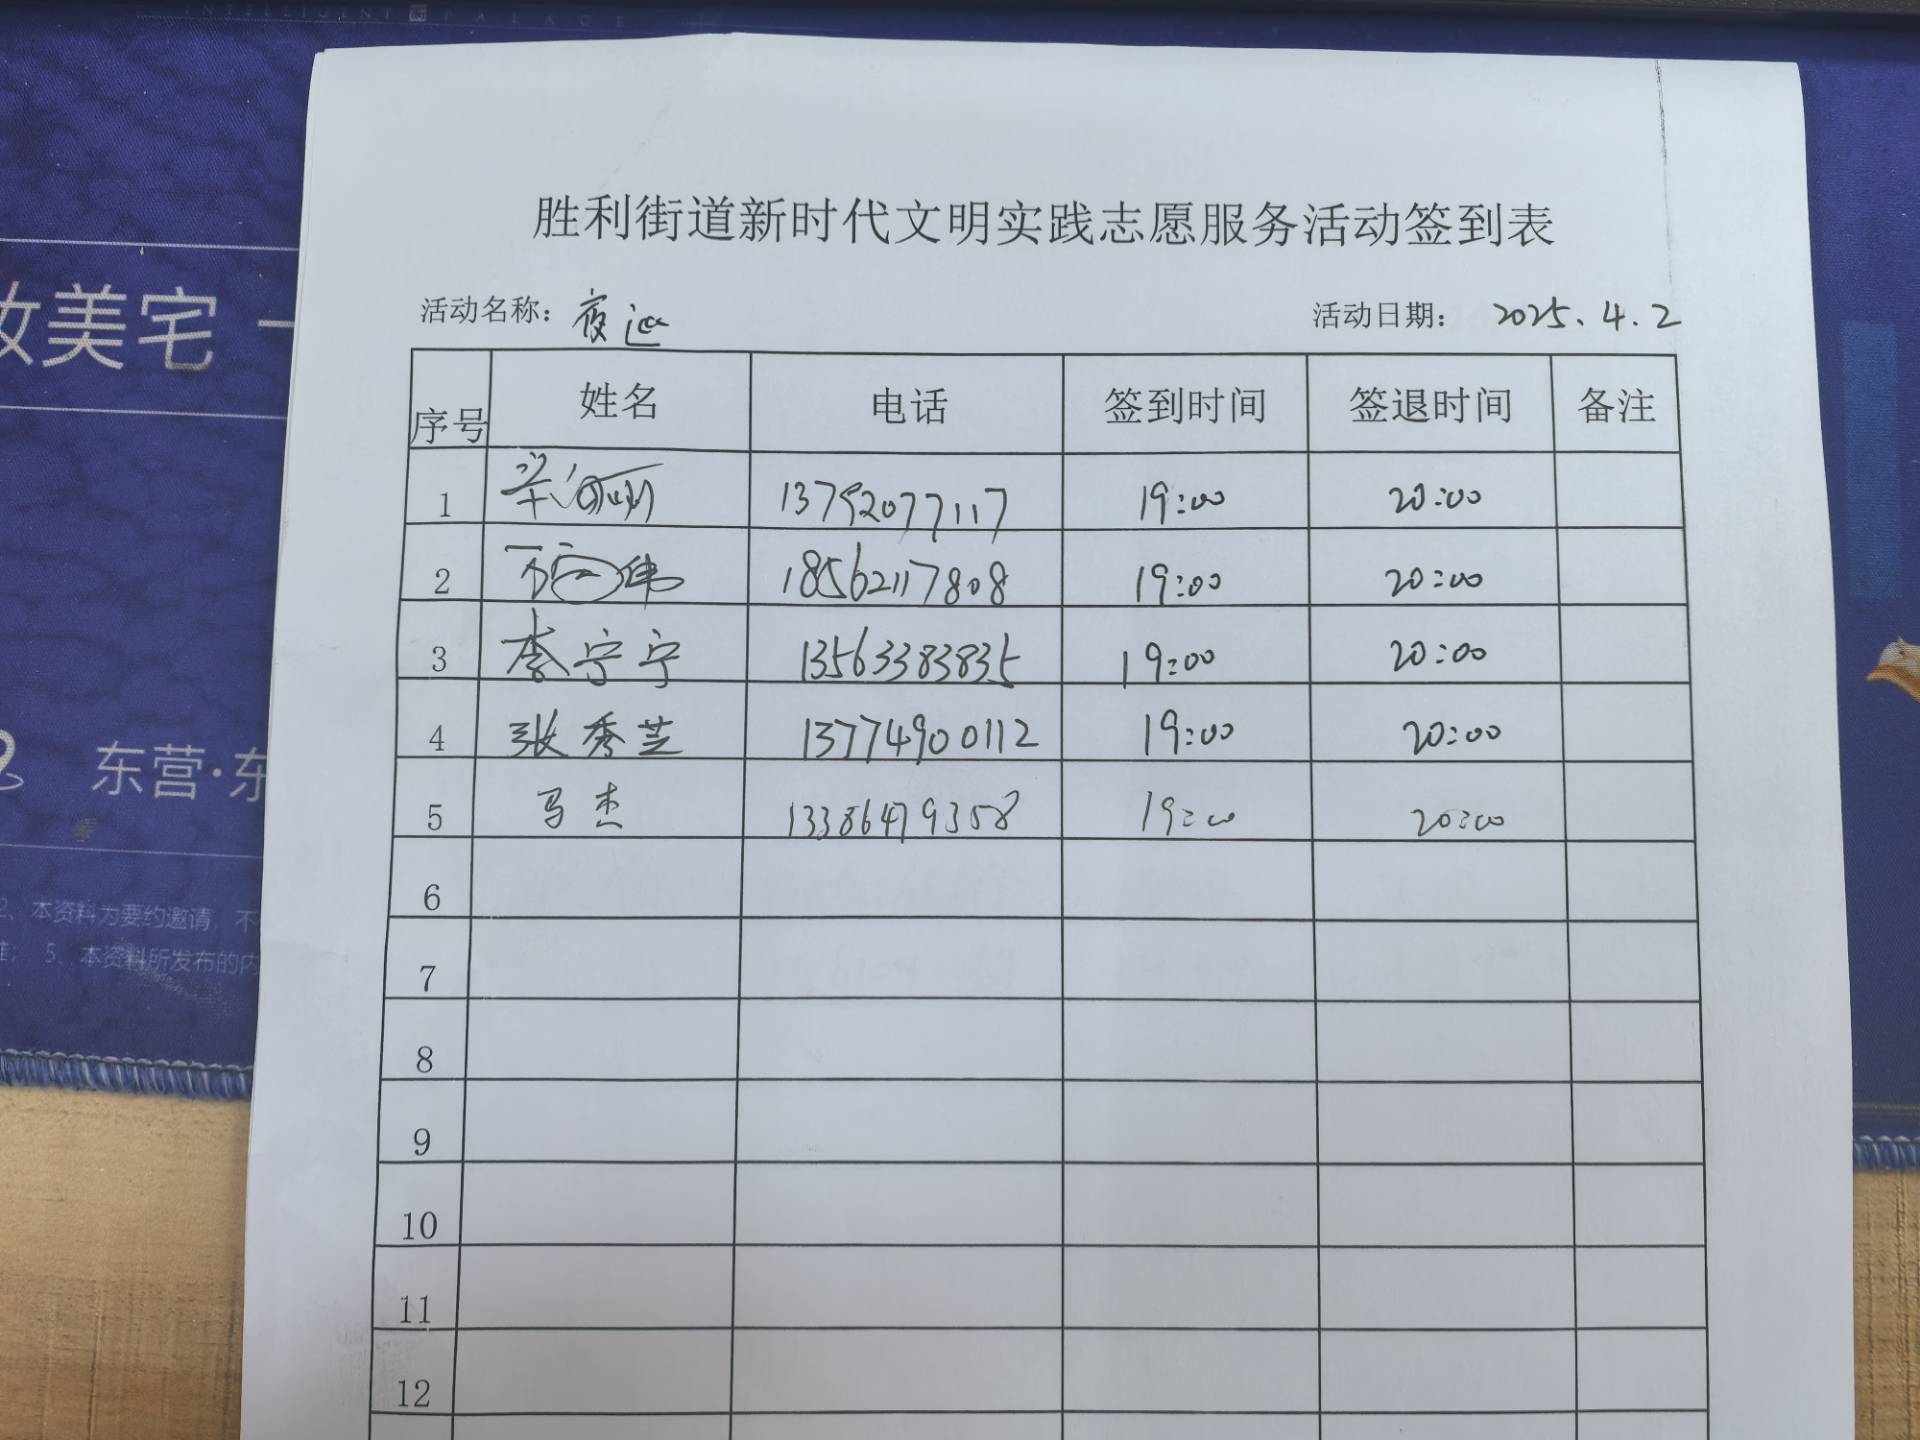 INTELLIGENT PALACE
胜利街道新时代文明实践志愿服务活动签到表
活动名称: 夜巡 活动日期: 2025.4.2
序号 姓名 电话 签到时间 签退时间 备注
1 13792077117 19:00 20:00
2 伟 18562117808 19:00 20:00
3 李宁宁 13563383835 19:00 20:00
4 张秀芝 13774900112 19:00 20:00
5 马杰 13386479358 19:00 20:00
6
7
8
9
10
11
12
美宅
东营·东
2、本资料为要约邀请,不
准; 5、本资料所发布的内